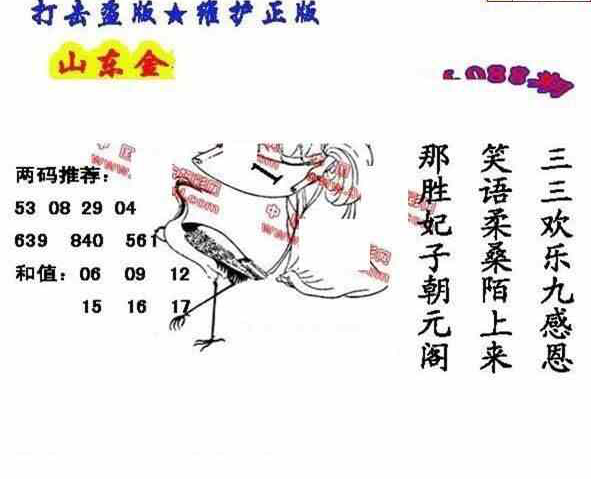 打击盗版★维护正版
山东金
088
两码推荐：
53 08 29 04
639 840 561
和值：06 09 12
15 16 17
1
三三欢乐九感恩
笑语柔桑陌上来
那胜妃子朝元阁